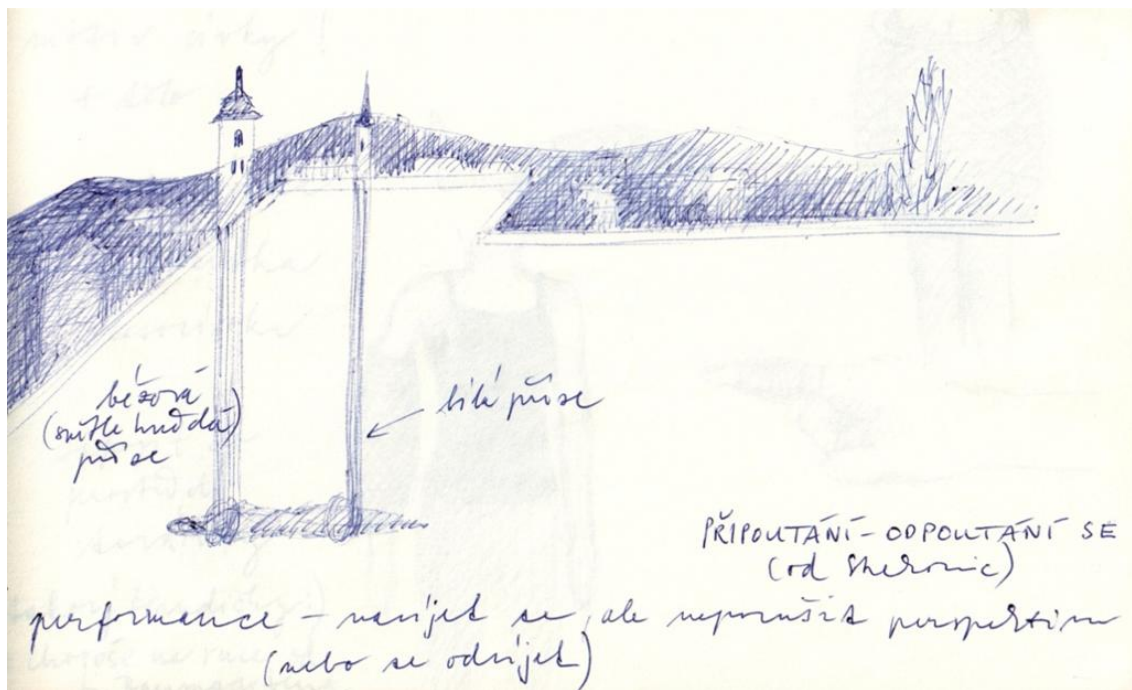 béžová
(světle hnědá)
příze
bílá příze
PŘIPOUTÁNÍ - ODPOUTÁNÍ SE
(od
performance - navíjet se, ale neporušit perspektivu
(nebo se odvíjet)